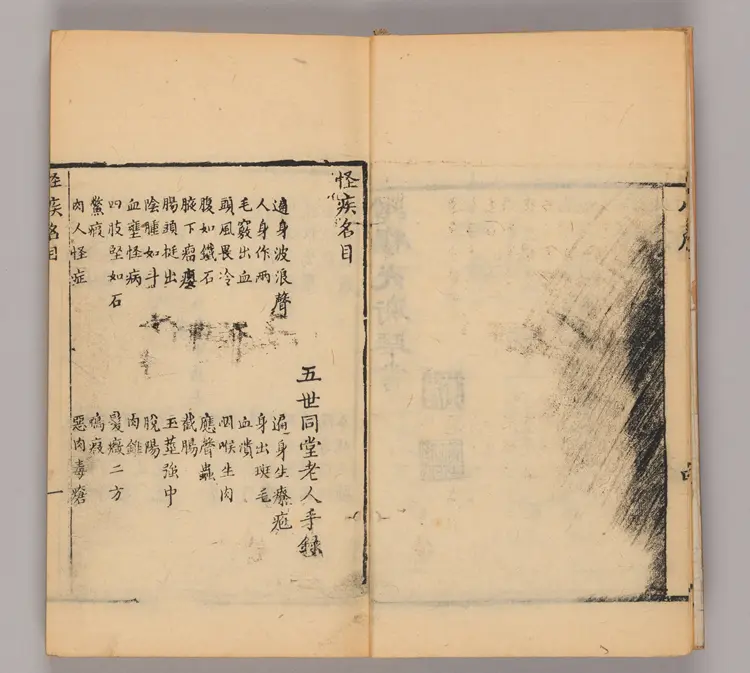 怪疾名目
五世同堂老人手錄
遍身波浪聲 遍身生療疱
人身作兩 身出斑毛
毛竅出血 血潰
頭風畏冷 咽喉生肉
腹如鐵石 應聲蟲
腋下瘤癭 截腸
腸頭挺出 玉莖強中
陰腫如斗 脫陽
血壅怪病 肉錐
四肢堅如石 髮癥二方
鱉瘕
肉人怪症 惡肉毒瘡
怪疾名目 一